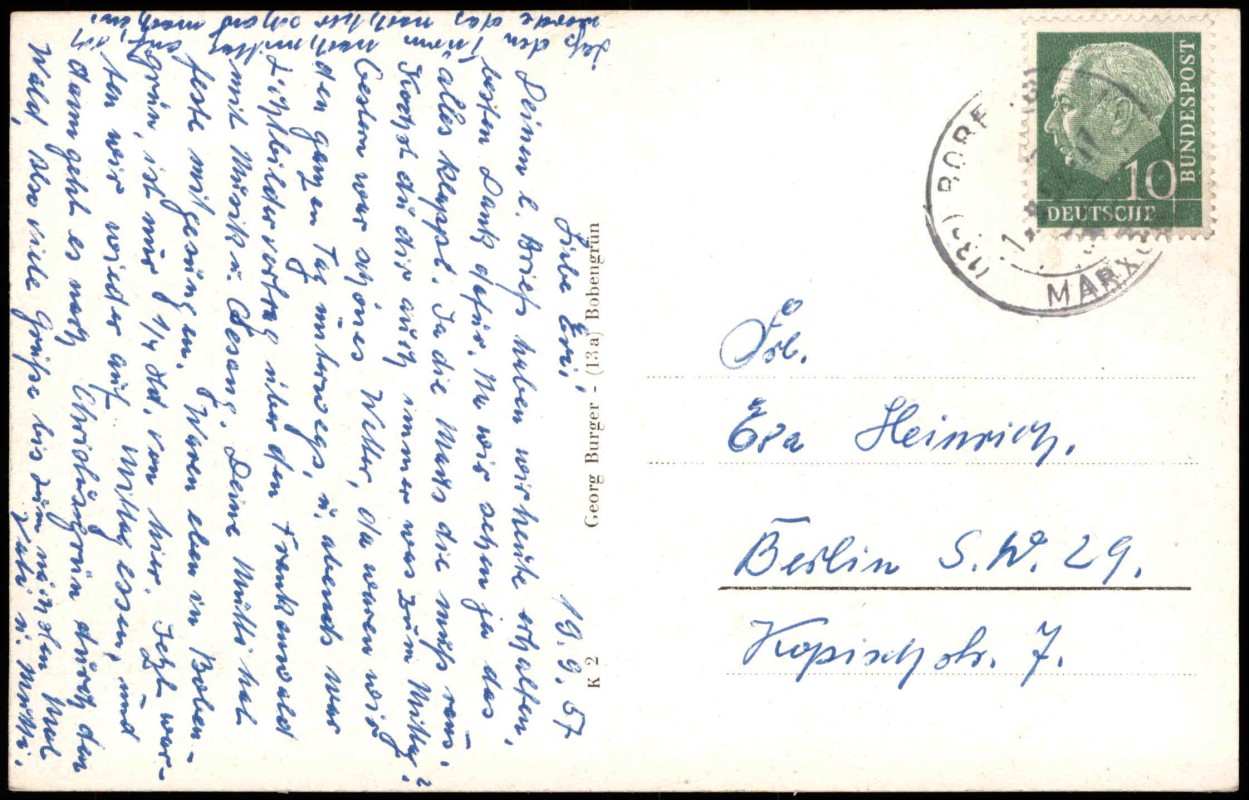 19.9.57
Liebe Evi!
Deinen l. Brief haben wir heute erhalten,
besten Dank dafür. Na wir sehen ja das
alles klappt. Ja die Maus die muß raus.
Kochst du dir auch immer was zum Mittag?
Gestern war schönes Wetter, da waren wir
den ganzen Tag unterwegs, u. abends war
Lichtbildervortrag über den Frankenwald
mit Musik u. Gesang. Deine Mutti hat
feste mit gesungen. Waren eben in Boben-
grün, ist nur 1/4 Std. von hier. Jetzt war-
ten wir wieder auf Mittagessen, und
dann geht es nach Christusgrün durch den
Wald, also viele Grüße bis zum nächsten Mal
Vati u. Mutti.
K 2 Georg Burger - (13a) Bobengrün
BUNDESPOST
10
DEUTSCHE
MARX
Frl.
Eva Heinrich.
Berlin S.W. 29.
Kopischstr. 7.